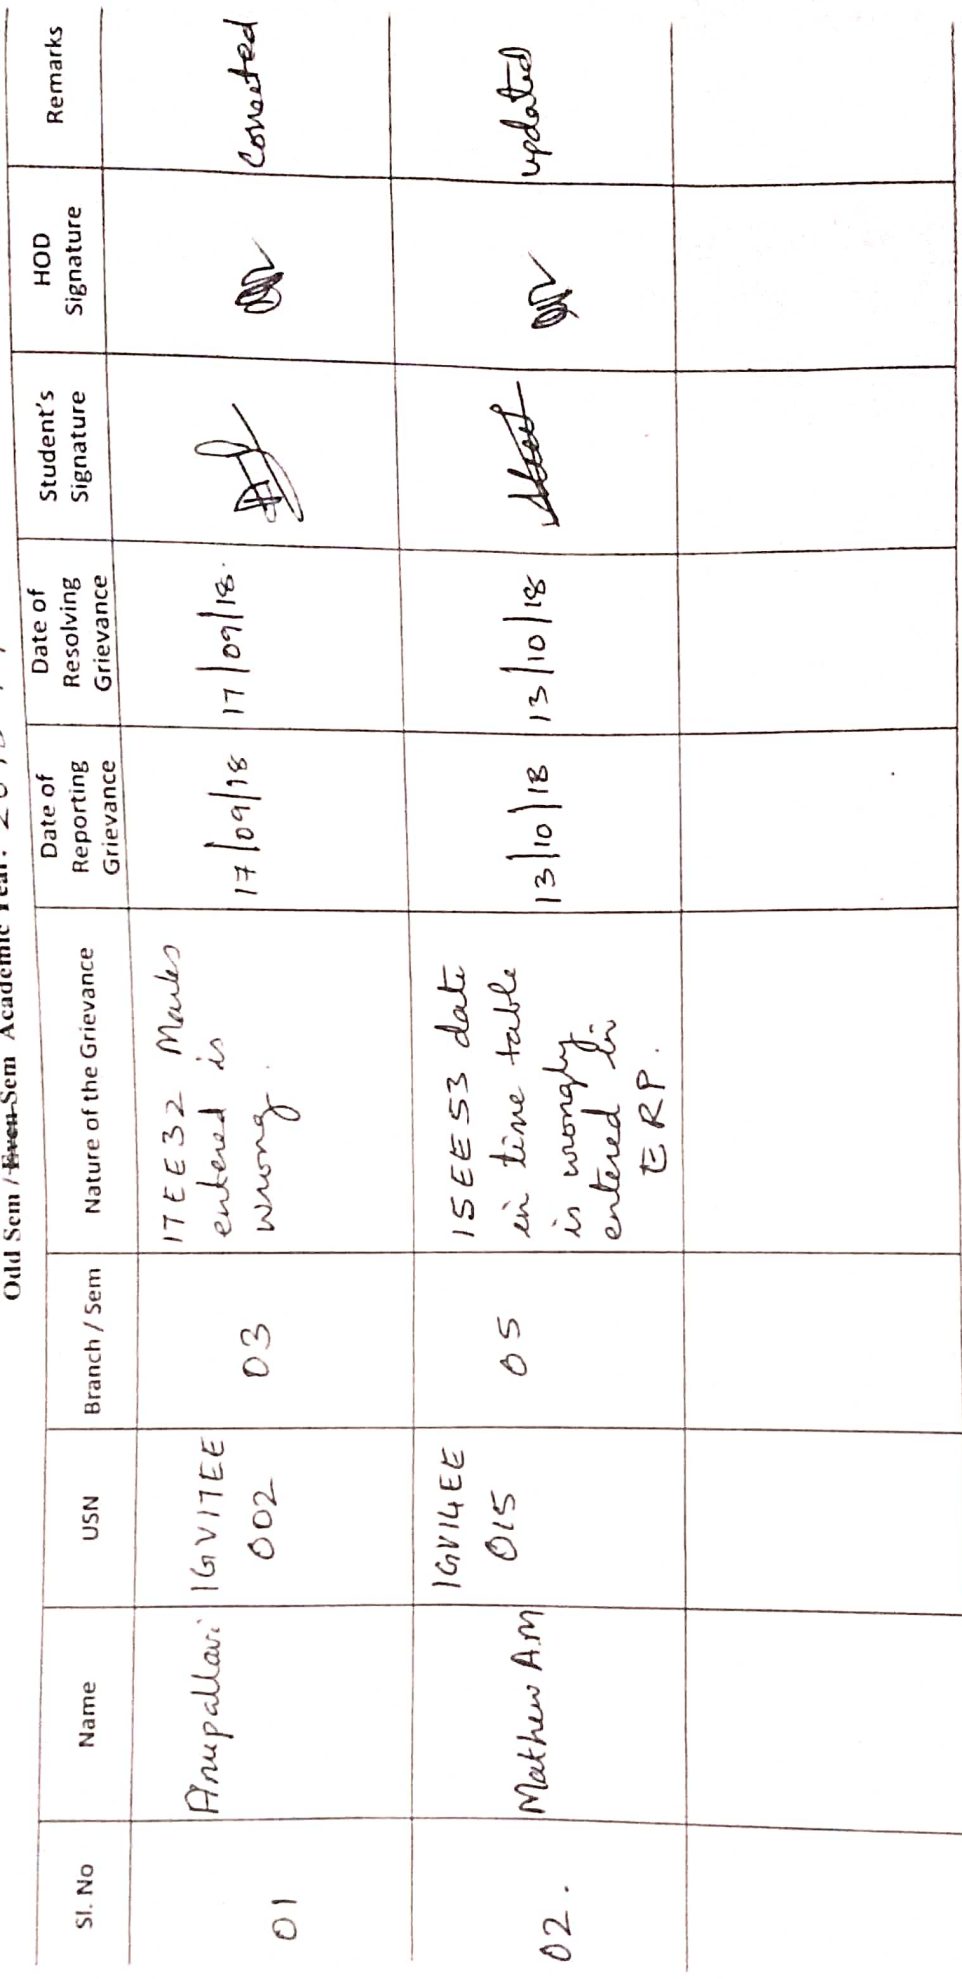 Odd Sem / Even Sem Academic Year:
Sl. No
Name
USN
Branch / Sem
Nature of the Grievance
Date of
Reporting
Grievance
Date of
Resolving
Grievance
Student's
Signature
HOD
Signature
Remarks
01
Anupallavi
1GV17EE
002
03
17EE32 Marks
entered is
wrong.
17/09/18
17/09/18.
Corrected
02.
Mathew A.M
1GV14EE
015
05
15EE53 date
in time table
is wrongly
entered in
ERP.
13/10/18
13/10/18
updated